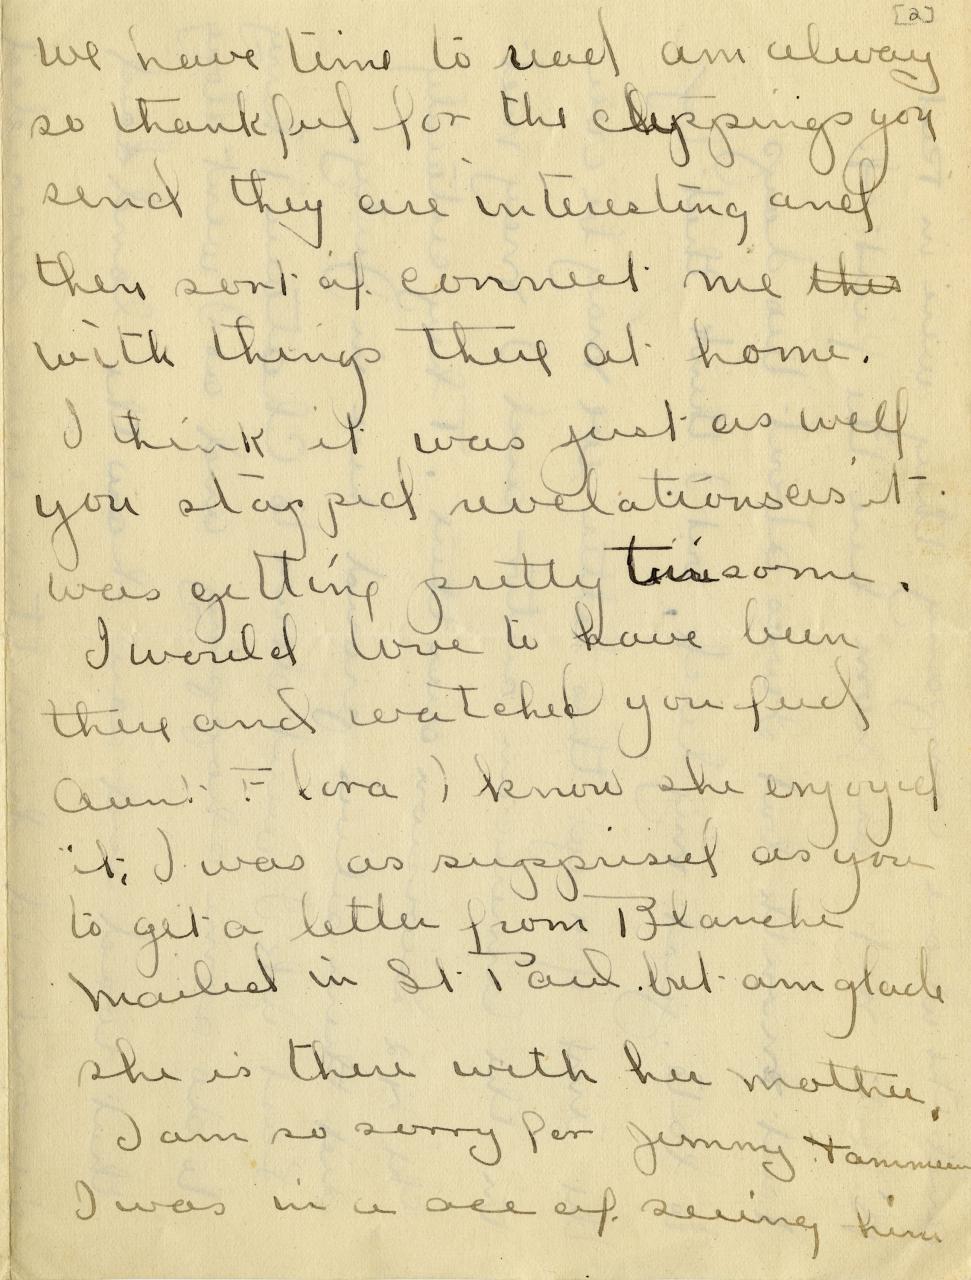 [2]
we have time to read am alway
so thankful for the clippings you
send they are interesting and
then sort of connect me the
with things there at home.
I think it was just as well
you stopped revelations as it
was getting pretty tiresome.
I would love to have been
there and watched you feed
Aunt Flora I know she enjoyed
it, I was as supprised as you
to get a letter from Blanche
mailed in St Paul. but am glade
she is there with her mother.
I am so sorry for Jimmy
I was in a ace of seeing him